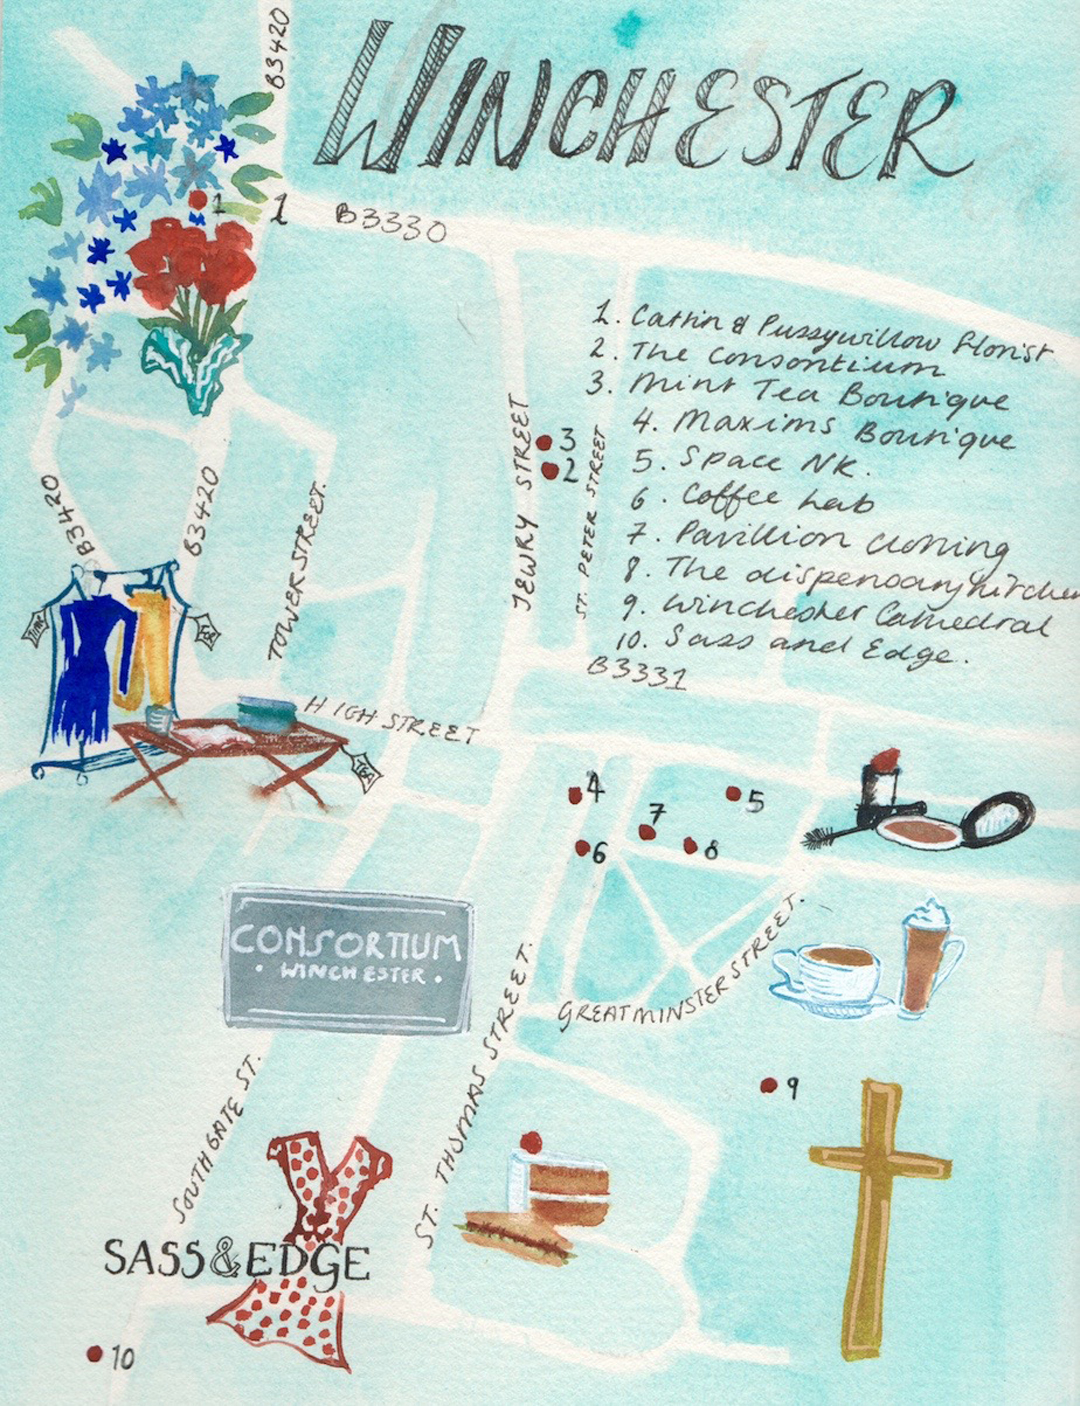 B3420
WINCHESTER
1
1
B3330
1. Catkin & Pussywillow florist
2. The Consortium
3. Mint Tea Boutique
4. Maxims Boutique
5. Space NK.
6. Coffee Lab
7. Pavillion clothing
8. The dispensary kitchen
9. Winchester Cathedral
10. Sass and Edge.
B3331
3
2
JEWRY STREET
ST. PETER STREET
B3420
B3420
TOWER STREET.
HIGH STREET
4
5
7
6
8
CONSORTIUM
· WINCHESTER ·
GREAT MINSTER STREET.
ST. THOMAS STREET.
SOUTHGATE ST.
9
SASS&EDGE
10